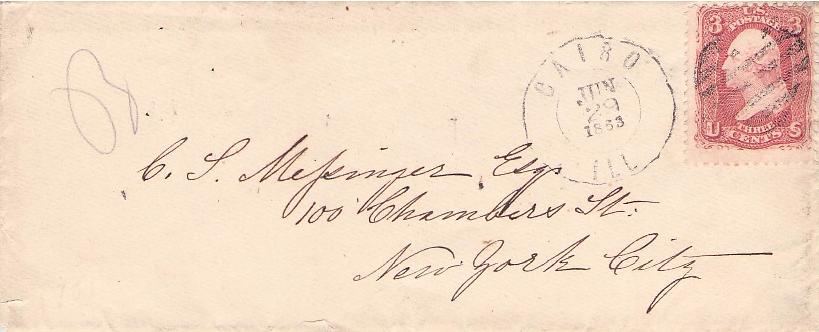 CAIRO
JUN
29
1863
ILL
3 U.S. 3
POSTAGE
U THREE S
CENTS
C. S. Messinger Esq.
100 Chambers St.
New York City